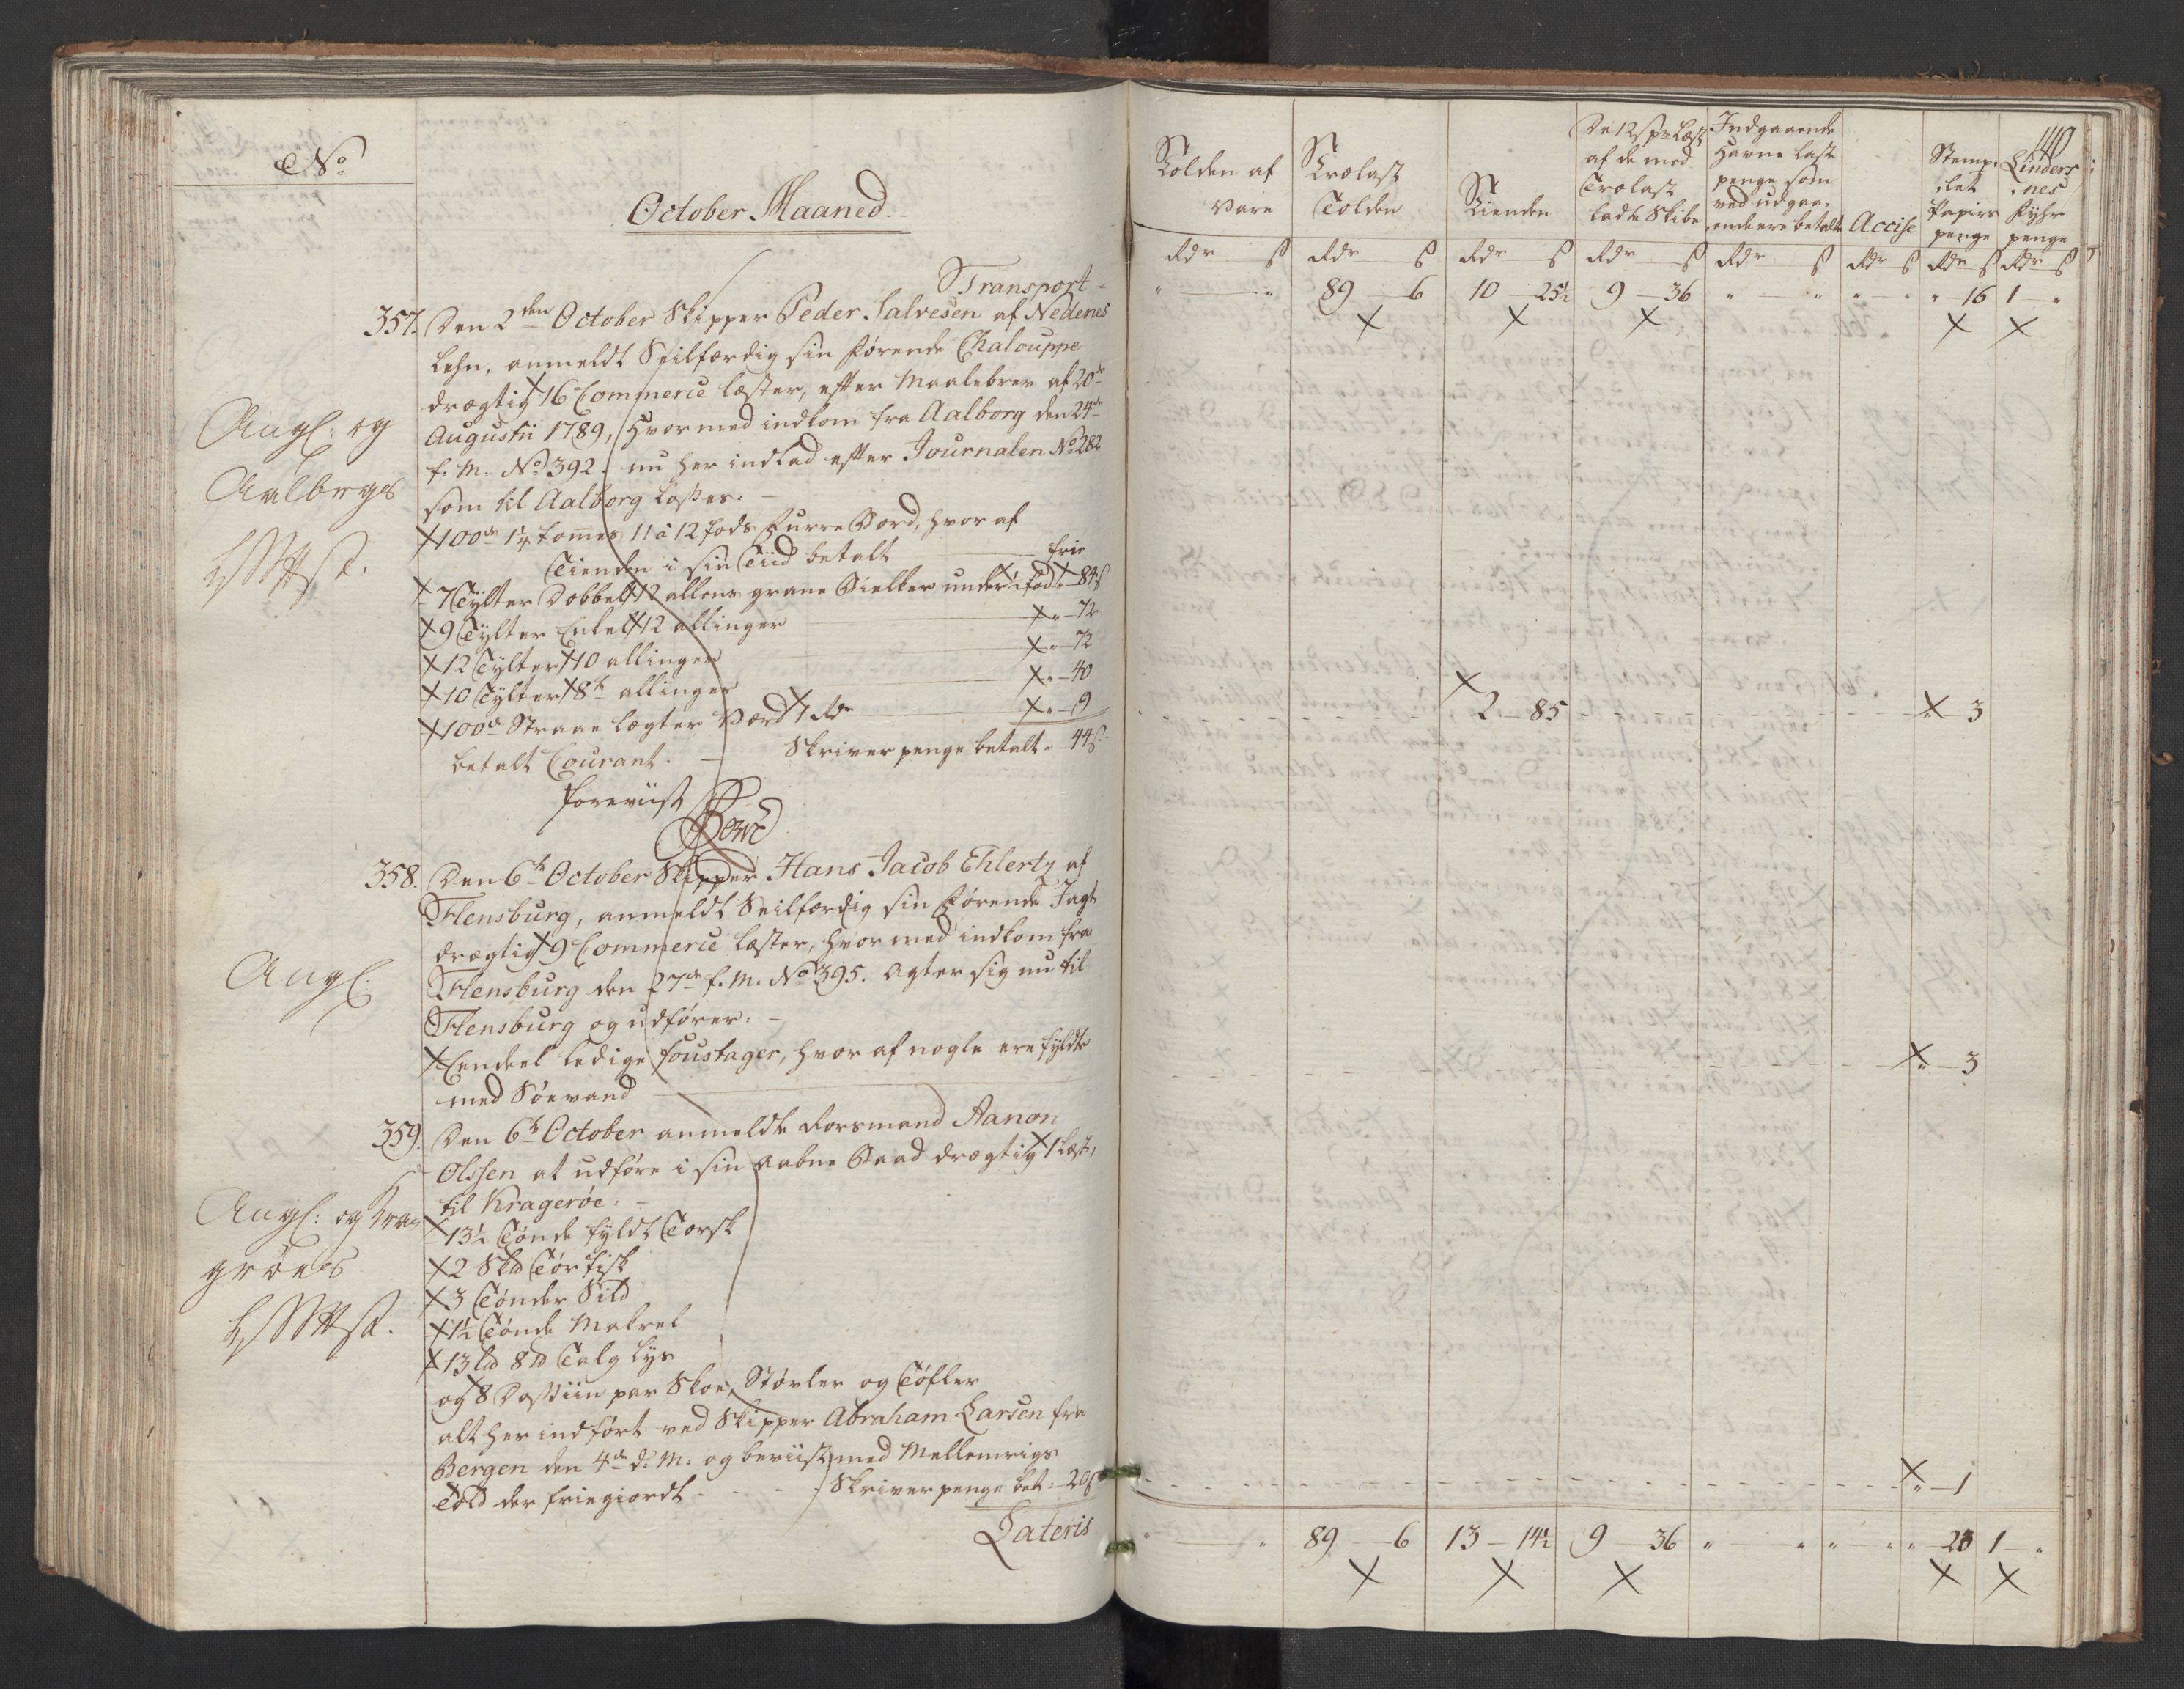 No
October Maaned.
Transport
357. Den 2den October Skipper Peder Salvesen af Nedenes
Lehn, anmeldt Seilfærdig sin førende Chalouppe
drægtig 16 Commerce læster, efter Maalebrev af 20de
Augustii 1789, hvormed indkom fra Aalborg den 24de
f. M. No 392. nu her indlad efter Journalen No 282
som til Aalborg losses.
100de 1¼ tommes 11 à 12 fods Furre Bord, hvor af
Tienden i sin Tiid betalt frie
7 Tylter Dobbelt 12 allens grane Bielker under 1 fod " 84 s
9 Tylter Enkelt 12 allinger " 72
12 Tylter 10 allinger " 72
10 Tylter 8te allinger " 40
100de Straae lægter Værd 1 Rdr " 9
betalt Courant. Skriver penge betalt " 44 s.
foreviist
Angf: og
Aalborgs
358. Den 6te October Skipper Hans Jacob Ehlertz af
Flensburg, anmeldt Seilfærdig sin førende Jagt
drægtig 9 Commerce læster, hvormed indkom fra
Flensburg den 27de f. M. No 395. agter sig nu til
Flensburg og udfører:
Eendeel ledige foustager, hvor af nogle ere fyldte
med Søevand
Angf:
359. Den 6te October anmeldte Rorsmand Aanon
Olssen at udføre i sin aabne Baad drægtig 1 læst,
til Kragerøe.
13½ Tønde fyldt Torsk
2 Skd Tør fisk
3 Tønder Sild
1½ Tønde Makrel
13 Ld 8 Td Talg Lys
og 8 Dossiin par Skoe, Støvler og Tøfler
alt her indført ved Skipper Abraham Larsen fra
Bergen den 4de d. M. og beviist med Mellemrigs
Told der friegiordt Skriver penge bet: 20 s
Angf: og Kra
grøes
Lateris
140
Tolden af Vare
Trælast Tolden
Tienden
De 12 s pr Læst af de med Trælast ladte Skibe
Indgaaende Havne laste penge som ved udgaaende ere betalt
Accise
Stemplet Papirs penge
Linders nes Fyhr penge
Rdr s Rdr s Rdr s Rdr s Rdr s Rdr s Rdr s Rdr s
" " 89 6 10 25½ 9 36 " " " " " 16 1 "
2 85 " 3
" 3
" 1
" " 89 6 13 14½ 9 36 " " " " " 23 1 "